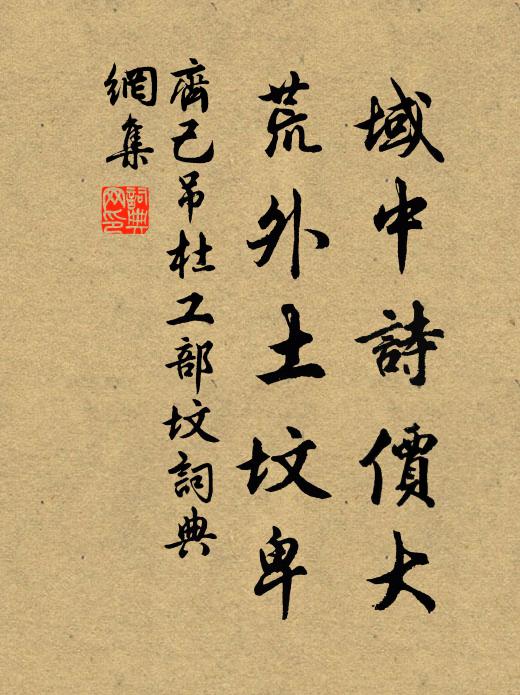 域中詩價大
荒外土坟卑
齊己吊杜工部坟詞典
網集
詞典网印